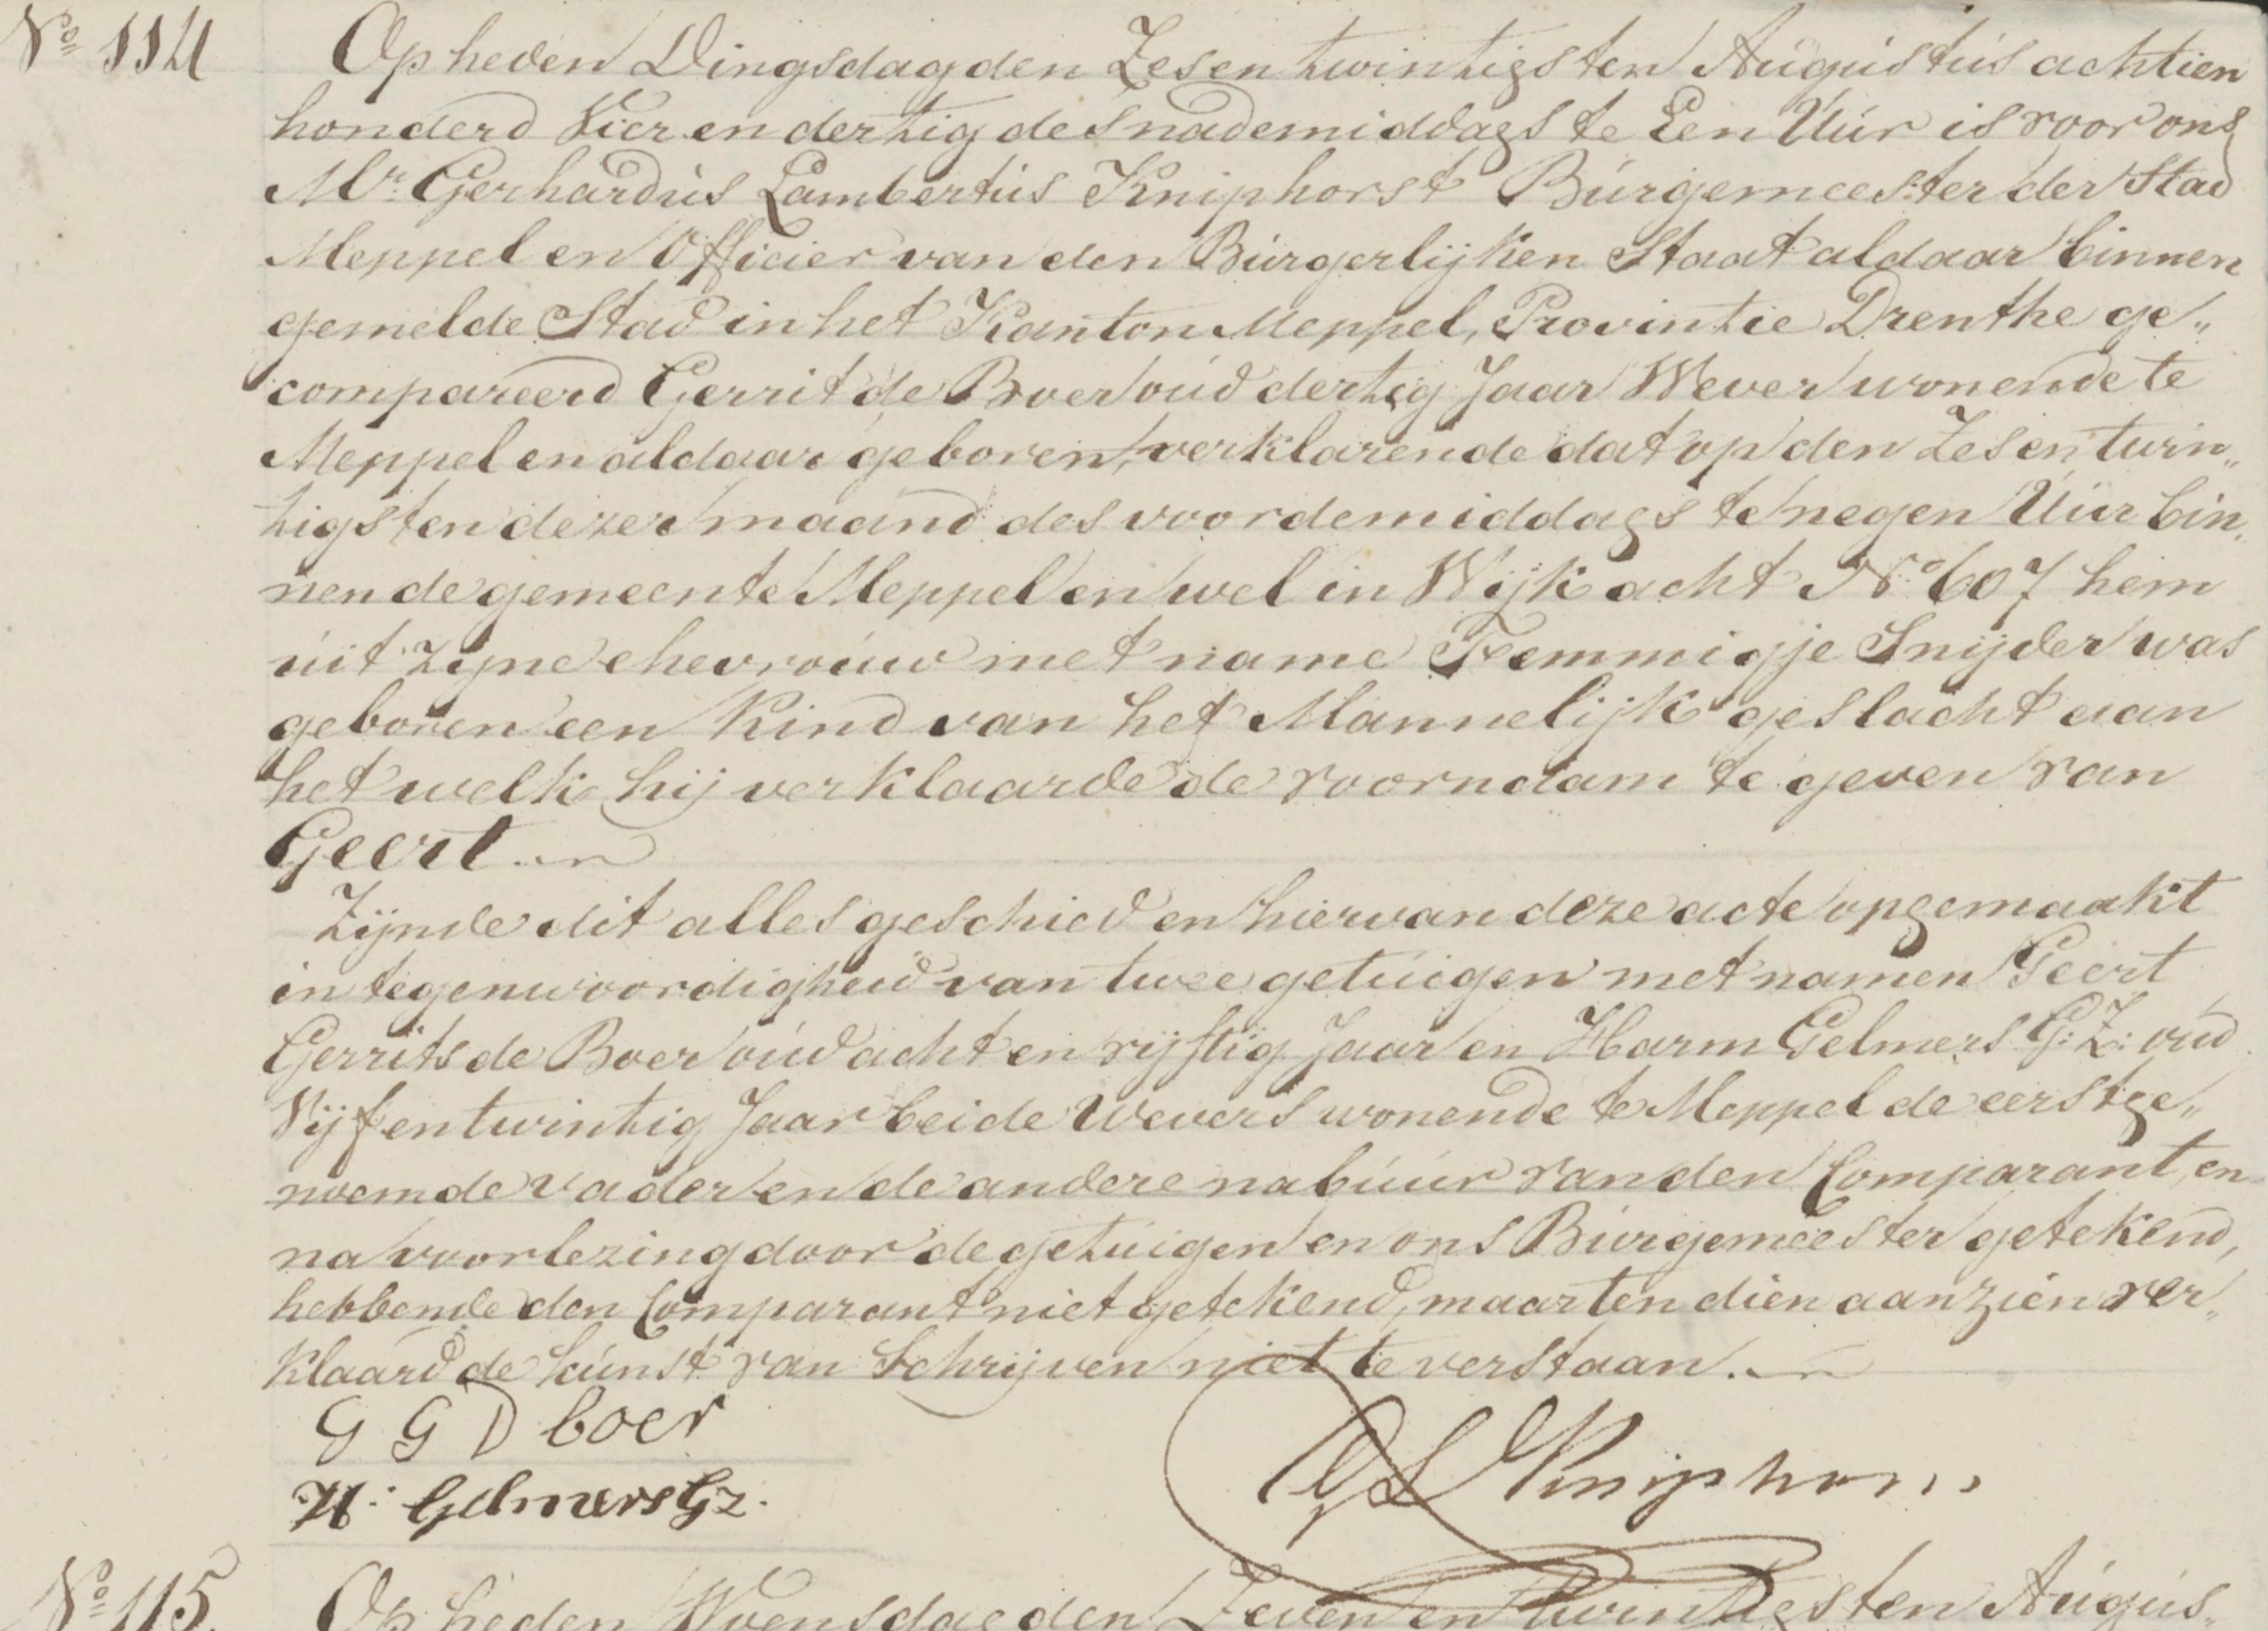 No 114
Op heden Dingsdag den Zesentwintigsten Augustus achtien
honderd Vier en dertig des nademiddags te Een Uur is voor ons
Mr. Gerhardus Lambertus Kniphorst Burgemeester der Stad
Meppel en Officier van den Burgerlijken Staat aldaar binnen
gemelde Stad in het Kanton Meppel, Provintie Drenthe ge„
compareerd Gerrit de Boer oud dertig Jaar Wever wonende te
Meppel en aldaar geboren, verklarende dat op den Zesentwin„
tigsten dezer maand des voordemiddags te negen Uur bin„
nen de gemeente Meppel en wel in Wijk acht No 607 hem
uit zijne ehevrouw met name Femmigje Snijder was
geboren een Kind van het Mannelijk geslacht aan
het welk hij verklaarde de voornaam te geven van
Geert.
Zijnde dit alles geschied en hiervan deze acte opgemaakt
in tegenwoordigheid van twee getuigen met namen Geert
Gerrits de Boer oud acht en vijftig Jaar en Harm Gelmers G:Z: oud
Vijfentwintig Jaar beide Wevers wonende te Meppel de eerstge„
noemde vader en de andere nabuur van den Comparant, en
na voorlezing door de getuigen en ons Burgemeester getekend,
hebbende den Comparant niet getekend, maar ten dien aanzien ver„
klaard de kunst van Schrijven niet te verstaan.
G G D boer
H. Gelmers Gz.
GL Kniphorst
No 115.
Op heden Woensdag den Zevenentwintigsten Augus„